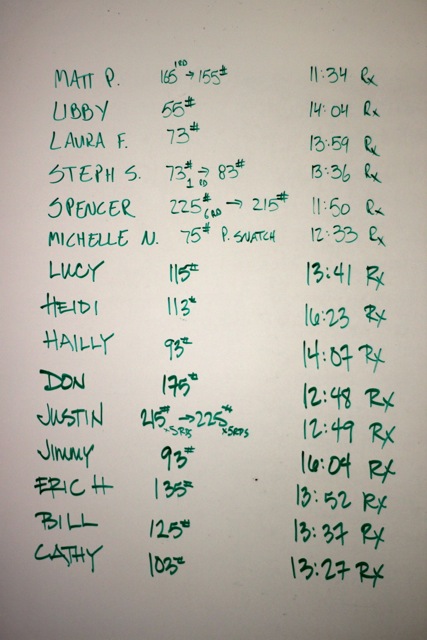 MATT P. 165 1RD → 155# 11:34 Rx
LIBBY 55# 14:04 Rx
LAURA F. 73# 13:59 Rx
STEPH S. 73# 1 RD → 83# 13:36 Rx
SPENCER 225# 6RD → 215# 11:50 Rx
MICHELLE N. 75# P. SNATCH 12:33 Rx
LUCY 115# 13:41 Rx
HEIDI 113# 16:23 Rx
HAILLY 93# 14:07 Rx
DON 175# 12:48 Rx
JUSTIN 215# x5RDS → 225# x5REPS 12:49 Rx
Jimmy 93# 16:04 Rx
ERIC H 135# 13:52 Rx
BILL 125# 13:37 Rx
CATHY 103# 13:27 Rx